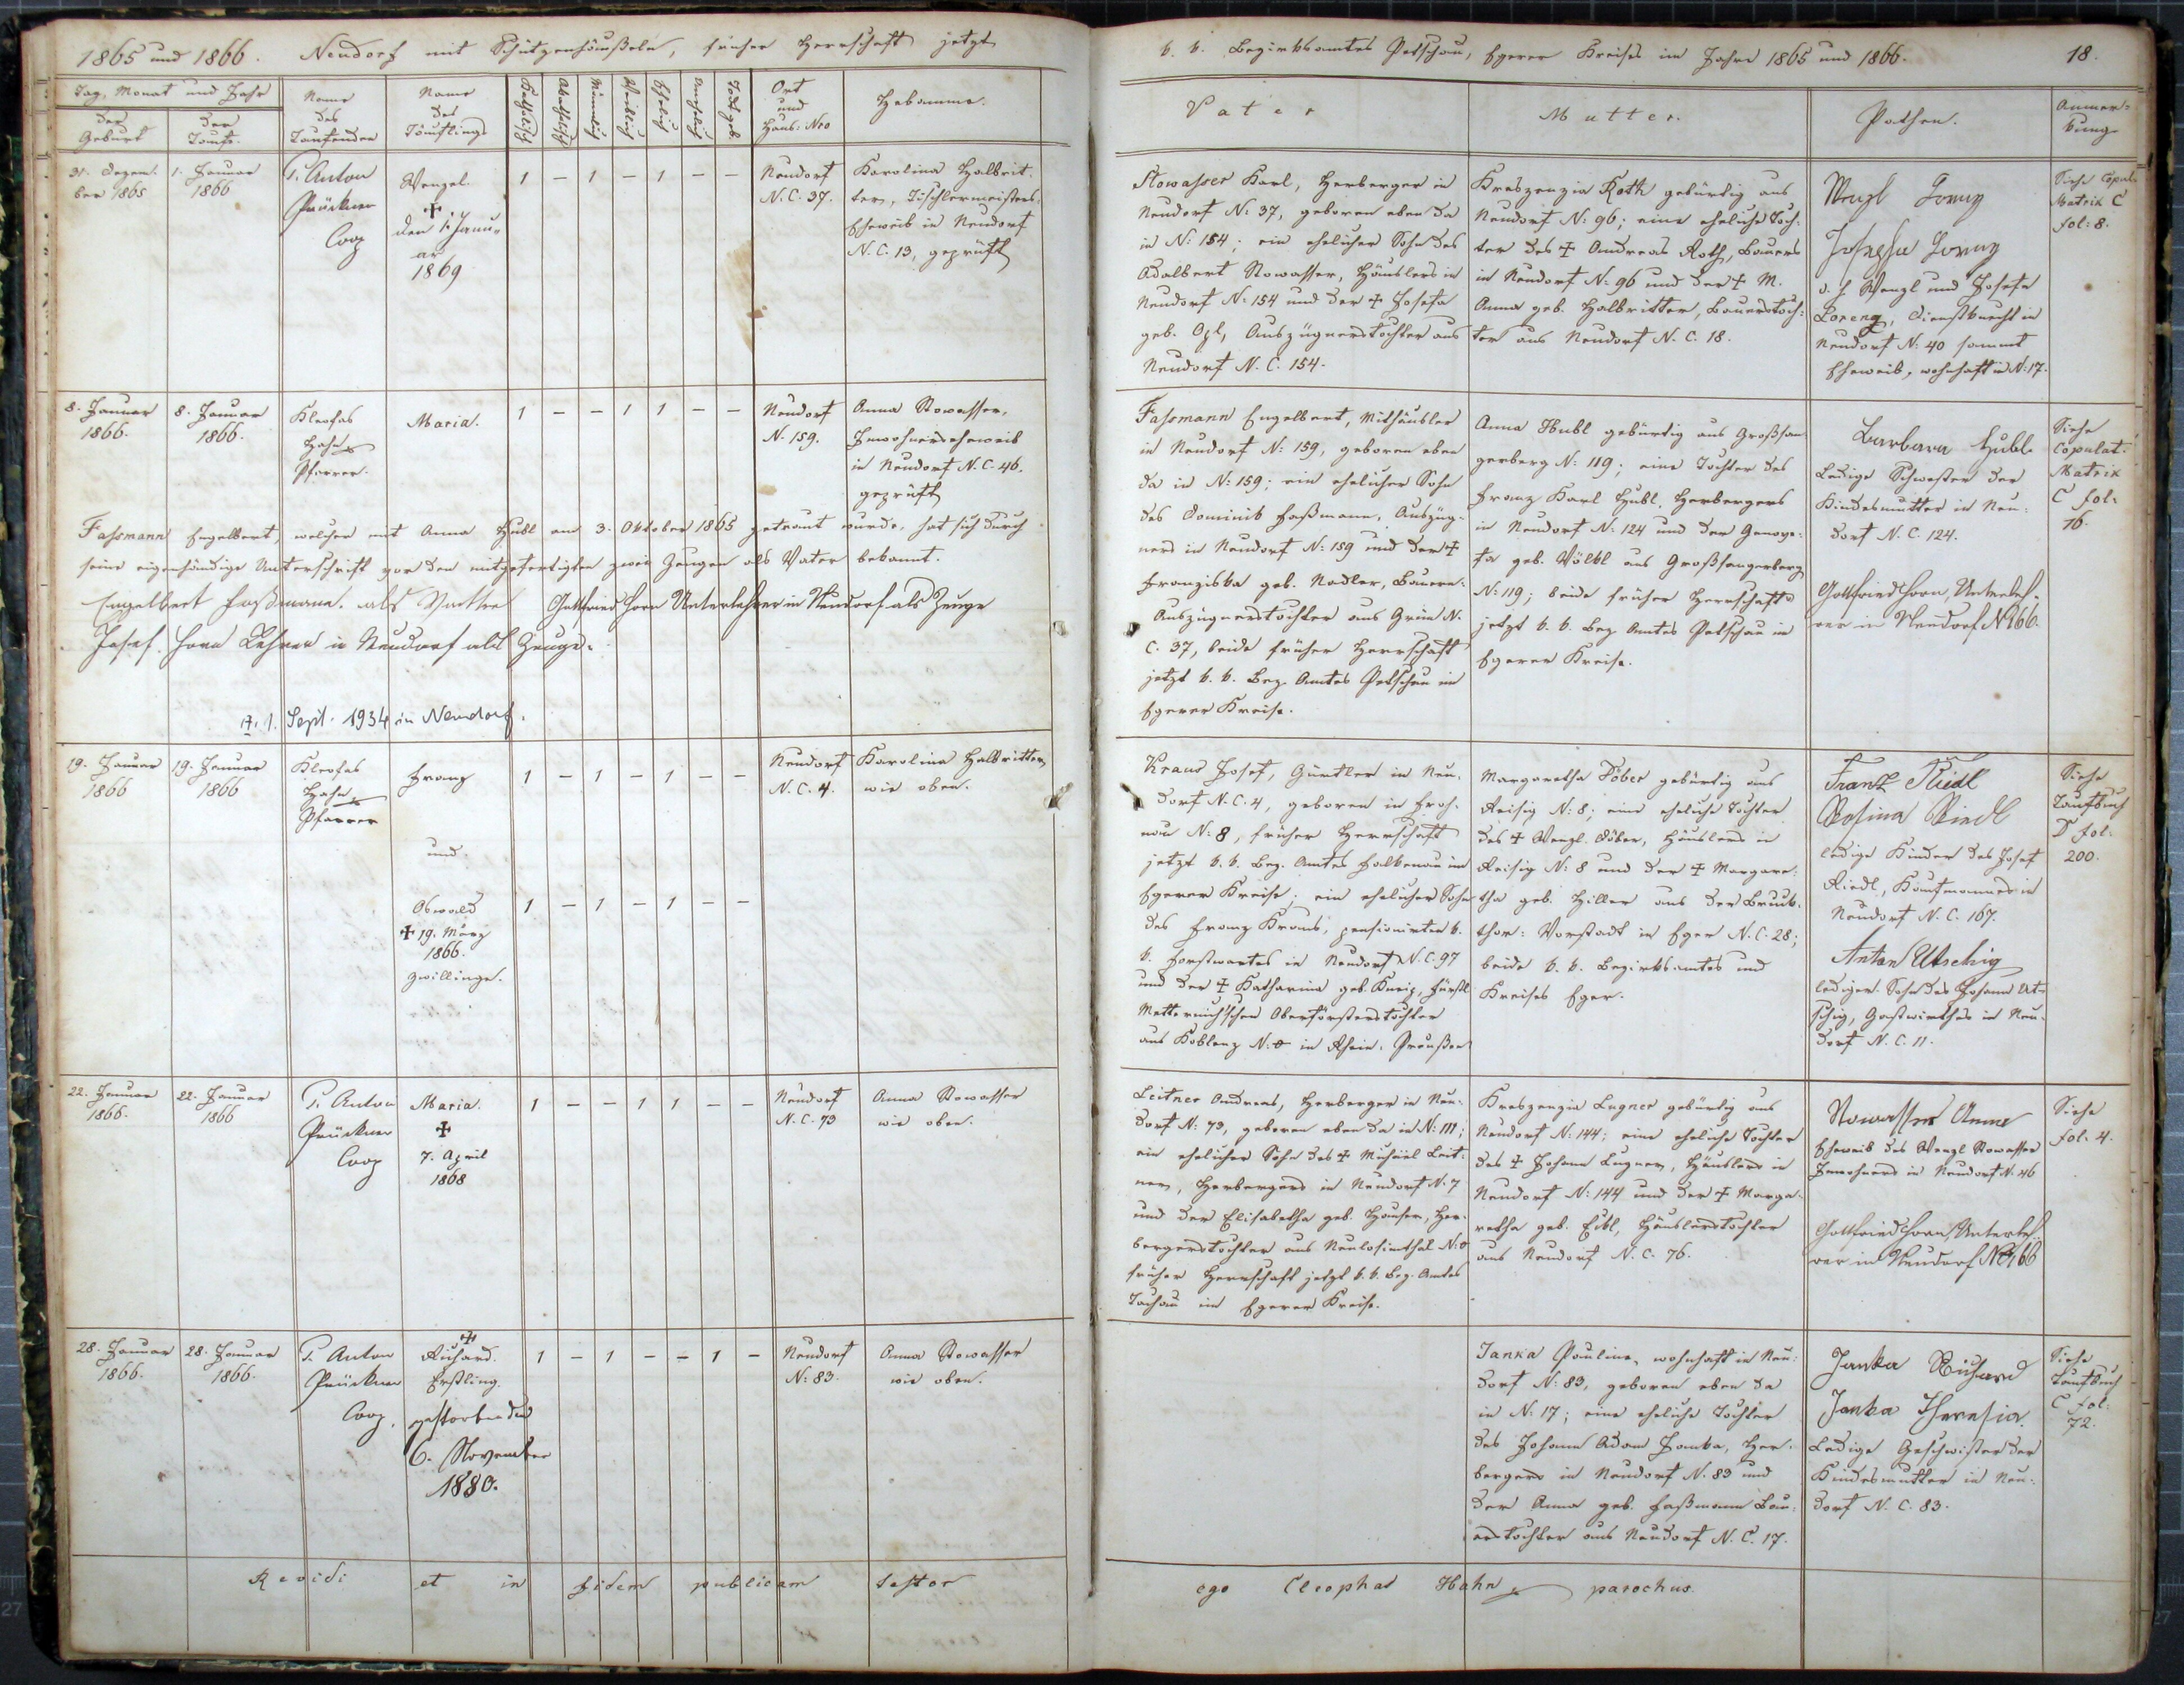 1865 und 1866. Neudorf mit Schützenhäußeln, früher Herrschaft jetzt
Tag, Monat und Jahr
der Geburt
der Taufe
Name des Taufenden
Name des Täuflings
Katholisch
Akatholisch
Männlich
Weiblich
Ehelich
Unehelich
Todtgeb.
Ort und Haus: Nro
Hebamme.
31. Dezem-
ber 1865
1. Januar
1866
P. Anton
Prückner
Coop
Wenzel.
✝
den 1. Janu-
ar
1869
1 – 1 – 1 – –
Neudorf
N. C. 37.
Karolina Halbrit-
ter, Tischlermeisters-
Eheweib in Neudorf
N. C. 13, geprüft
8. Januar
1866.
8. Januar
1866.
Kleofas
Hahn
Pfarrer.
Maria.
1 – – 1 1 – –
Neudorf
N. 159.
Anna Stowasser,
Inwohnerseheweib
in Neudorf N. C. 46.
geprüft
Fassmann Engelbert, welcher mit Anna Hubl am 3. Oktober 1865 getraut wurde, hat sich durch
seine eigenhändige Unterschrift vor den mitgefertigten zwei Zeugen als Vater bekannt.
Engelbert Faßmann. als Vatter Gottfried Horn Unterlehrer in Neudorf als Zeuge
Josef Horn Lehrer in Neudorf als Zeuge.
✝. 1. Sept. 1934 in Neudorf.
19. Januar
1866
19. Januar
1866
Kleofas
Hahn
Pfarrer
Franz
1 – 1 – 1 – –
Neudorf
N. C. 4.
Karolina Halbritter
wie oben.
und
Oswald
✝ 19. März
1866.
Zwillinge.
1 – 1 – 1 – –
22. Januar
1866.
22. Januar
1866
P. Anton
Prückner
Coop
Maria.
✝
7. April
1868
1 – – 1 1 – –
Neudorf
N. C. 73
Anna Stowasser
wie oben.
28. Januar
1866.
28. Januar
1866.
P. Anton
Prückner
Coop.
✝
Richard.
Erstling.
gestorben den
6. November
1880.
1 – 1 – – 1 –
Neudorf
N: 83.
Anna Stowasser
wie oben.
Revidi et in fidem publicam testor
k. k. Bezirksamtes Petschau, Egerer Kreises im Jahre 1865 und 1866.
18.
Vater
Mutter.
Pathen.
Anmer-
kung
Stowasser Karl, Herberger in
Neudorf N: 37, geboren eben da
in N: 154; ein ehelicher Sohn des
Adalbert Stowasser, Häuslers in
Neudorf N: 154 und der ✝ Josefa
geb. Opl, Auszügnerstochter aus
Neudorf N. C. 154.
Kreszenzia Roth gebürtig aus
Neudorf N: 96; eine eheliche Toch-
ter des ✝ Andreas Roth, Bauers
in Neudorf N: 96 und der ✝ M.
Anna geb. Halbritter, Bauerstoch-
ter aus Neudorf N. C. 18.
Wenzl Lorenz
Josefa Lorenz
d. h. Wenzl und Josefa
Lorenz, Dienstknecht in
Neudorf N: 40 sammt
Eheweib, wohnhaft in N: 17.
Siehe Copul.
Matrik C
fol: 8.
Fassmann Engelbert, Mithäusler
in Neudorf N: 159, geboren eben
da in N: 159; ein ehelicher Sohn
des Dominik Faßmann, Auszüg-
ners in Neudorf N: 159 und der ✝
Franziska geb. Nadler, Bauern-
Auszügnerstochter aus Grün N.
C. 37, beide früher Herrschaft
jetzt k. k. Bez. Amtes Petschau im
Egerer Kreise.
Anna Hubl gebürtig aus Großsan-
gerberg N: 119; eine Tochter des
Franz Karl Hubl, Herbergers
in Neudorf N: 124 und der Genove-
fa geb. Völkl aus Großsangerberg
N: 119; beide früher Herrschaft
jetzt k. k. Bez Amtes Petschau im
Egerer Kreise.
Barbara Hubl
Ledige Schwester der
Kindesmutter in Neu-
dorf N. C. 124.
Gottfried Horn, Unterleh-
rer in Neudorf N 166.
Siehe
Copulat.
Matrik
C fol:
16.
Kraus Josef, Gürtler in Neu-
dorf N. C. 4, geboren in Froh-
nau N: 8, früher Herrschaft
jetzt k. k. Bez. Amtes Falkenau im
Egerer Kreise; ein ehelicher Sohn
des Franz Kraus, pensionirten k.
k. Forstwartes in Neudorf N. C. 97
und der ✝ Katharina geb. Kneip, fürstl
Metternich'schen Oberförsterstochter
aus Koblenz N: 0 in Rhein-Preußen
Margaretha Döber gebürtig aus
Reisig N: 8; eine eheliche Tochter
des ✝ Wenzl Döber, Häuslers in
Reisig N: 8 und der ✝ Margare-
tha geb. Hiller aus der Bruck-
thor: Vorstadt in Eger N. C. 28;
beide k. k. Bezirksamtes und
Kreises Eger.
Frank Riedl
Rosina Riedl
ledige Kinder des Josef
Riedl, Kaufmannes in
Neudorf N. C. 167.
Anton Utschig
lediger Sohn des Johann Ut-
schig, Gastwirthes in Neu-
dorf N. C. 11.
Siehe
Taufbuch
D fol:
200.
Leitner Andreas, Herberger in Neu-
dorf N: 73, geboren eben da in N: 111;
ein ehelicher Sohn des ✝ Michael Leit-
ner, Herbergers in Neudorf N. 7
und der Elisabetha geb. Hauser, Her-
bergerstochter aus Neulosimthal N: 0
früher Herrschaft jetzt k. k. Bez. Amtes
Tachau im Egerer Kreise.
Kreszenzia Lugner gebürtig aus
Neudorf N: 144; eine eheliche Tochter
des ✝ Johann Lugner, Häuslers in
Neudorf N: 144 und der ✝ Marga-
retha geb. Eibl, Häuslerstochter
aus Neudorf N. C. 76.
Stowasser Anna
Eheweib des Wenzl Stowasser
Inwohners in Neudorf N. 46
Gottfried Horn, Unterleh-
rer in Neudorf N 166
Siehe
fol: 4.
Janka Pauline, wohnhaft in Neu-
dorf N: 83, geboren eben da
in N: 17; eine eheliche Tochter
des Johann Adam Janka, Her-
bergers in Neudorf N. 83 und
der Anna geb. Faßmann Bau-
erstochter aus Neudorf N. C. 17.
Janka Richard
Janka Theresia.
Ledige Geschwister der
Kindesmutter in Neu-
dorf N. C. 83.
Siehe
Taufbuch
C fol:
72.
ego Cleophas Hahn parochus.